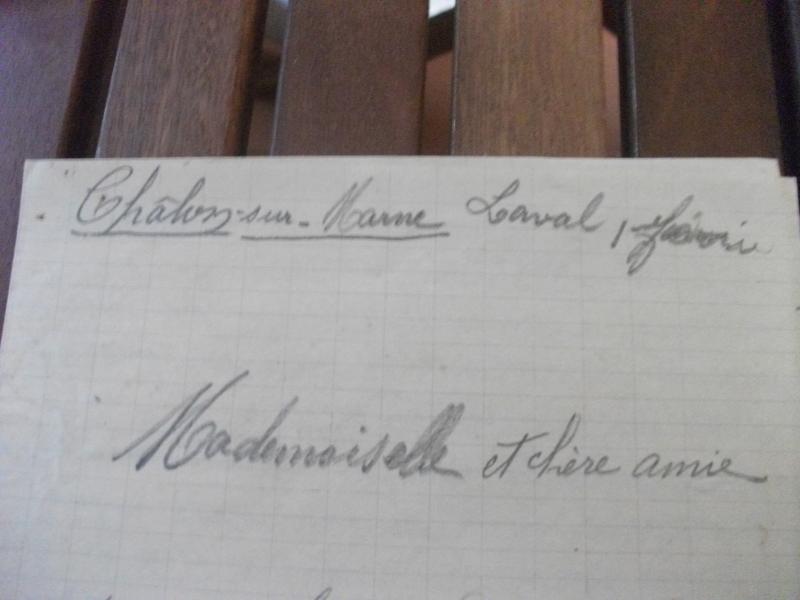 Châlons-sur-Marne Laval, 1
Mademoiselle et chère amie